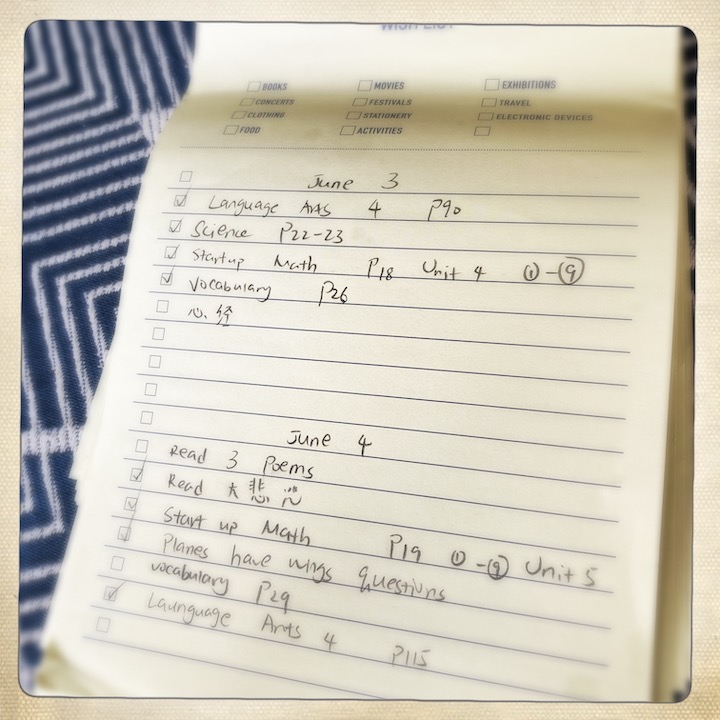 WISH LIST
BOOKS MOVIES EXHIBITIONS
CONCERTS FESTIVALS TRAVEL
CLOTHING STATIONERY ELECTRONIC DEVICES
FOOD ACTIVITIES
June 3
Language Arts 4 P90
Science P22-23
Startup Math P18 Unit 4 ①-⑨
Vocabulary P26
心经
June 4
Read 3 Poems
Read 大悲咒
Start up Math P19 ①-⑨ Unit 5
Planes have wings questions
vocabulary P29
Launguage Arts 4 P115